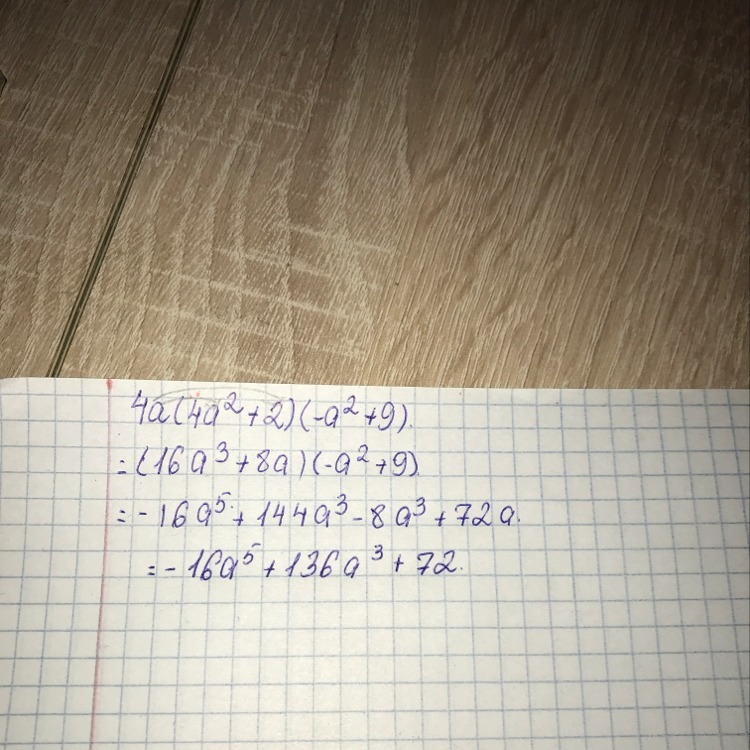 4a(4a²+2)(-a²+9).
=(16a³+8a)(-a²+9)
=-16a⁵+144a³-8a³+72a.
=-16a⁵+136a³+72.